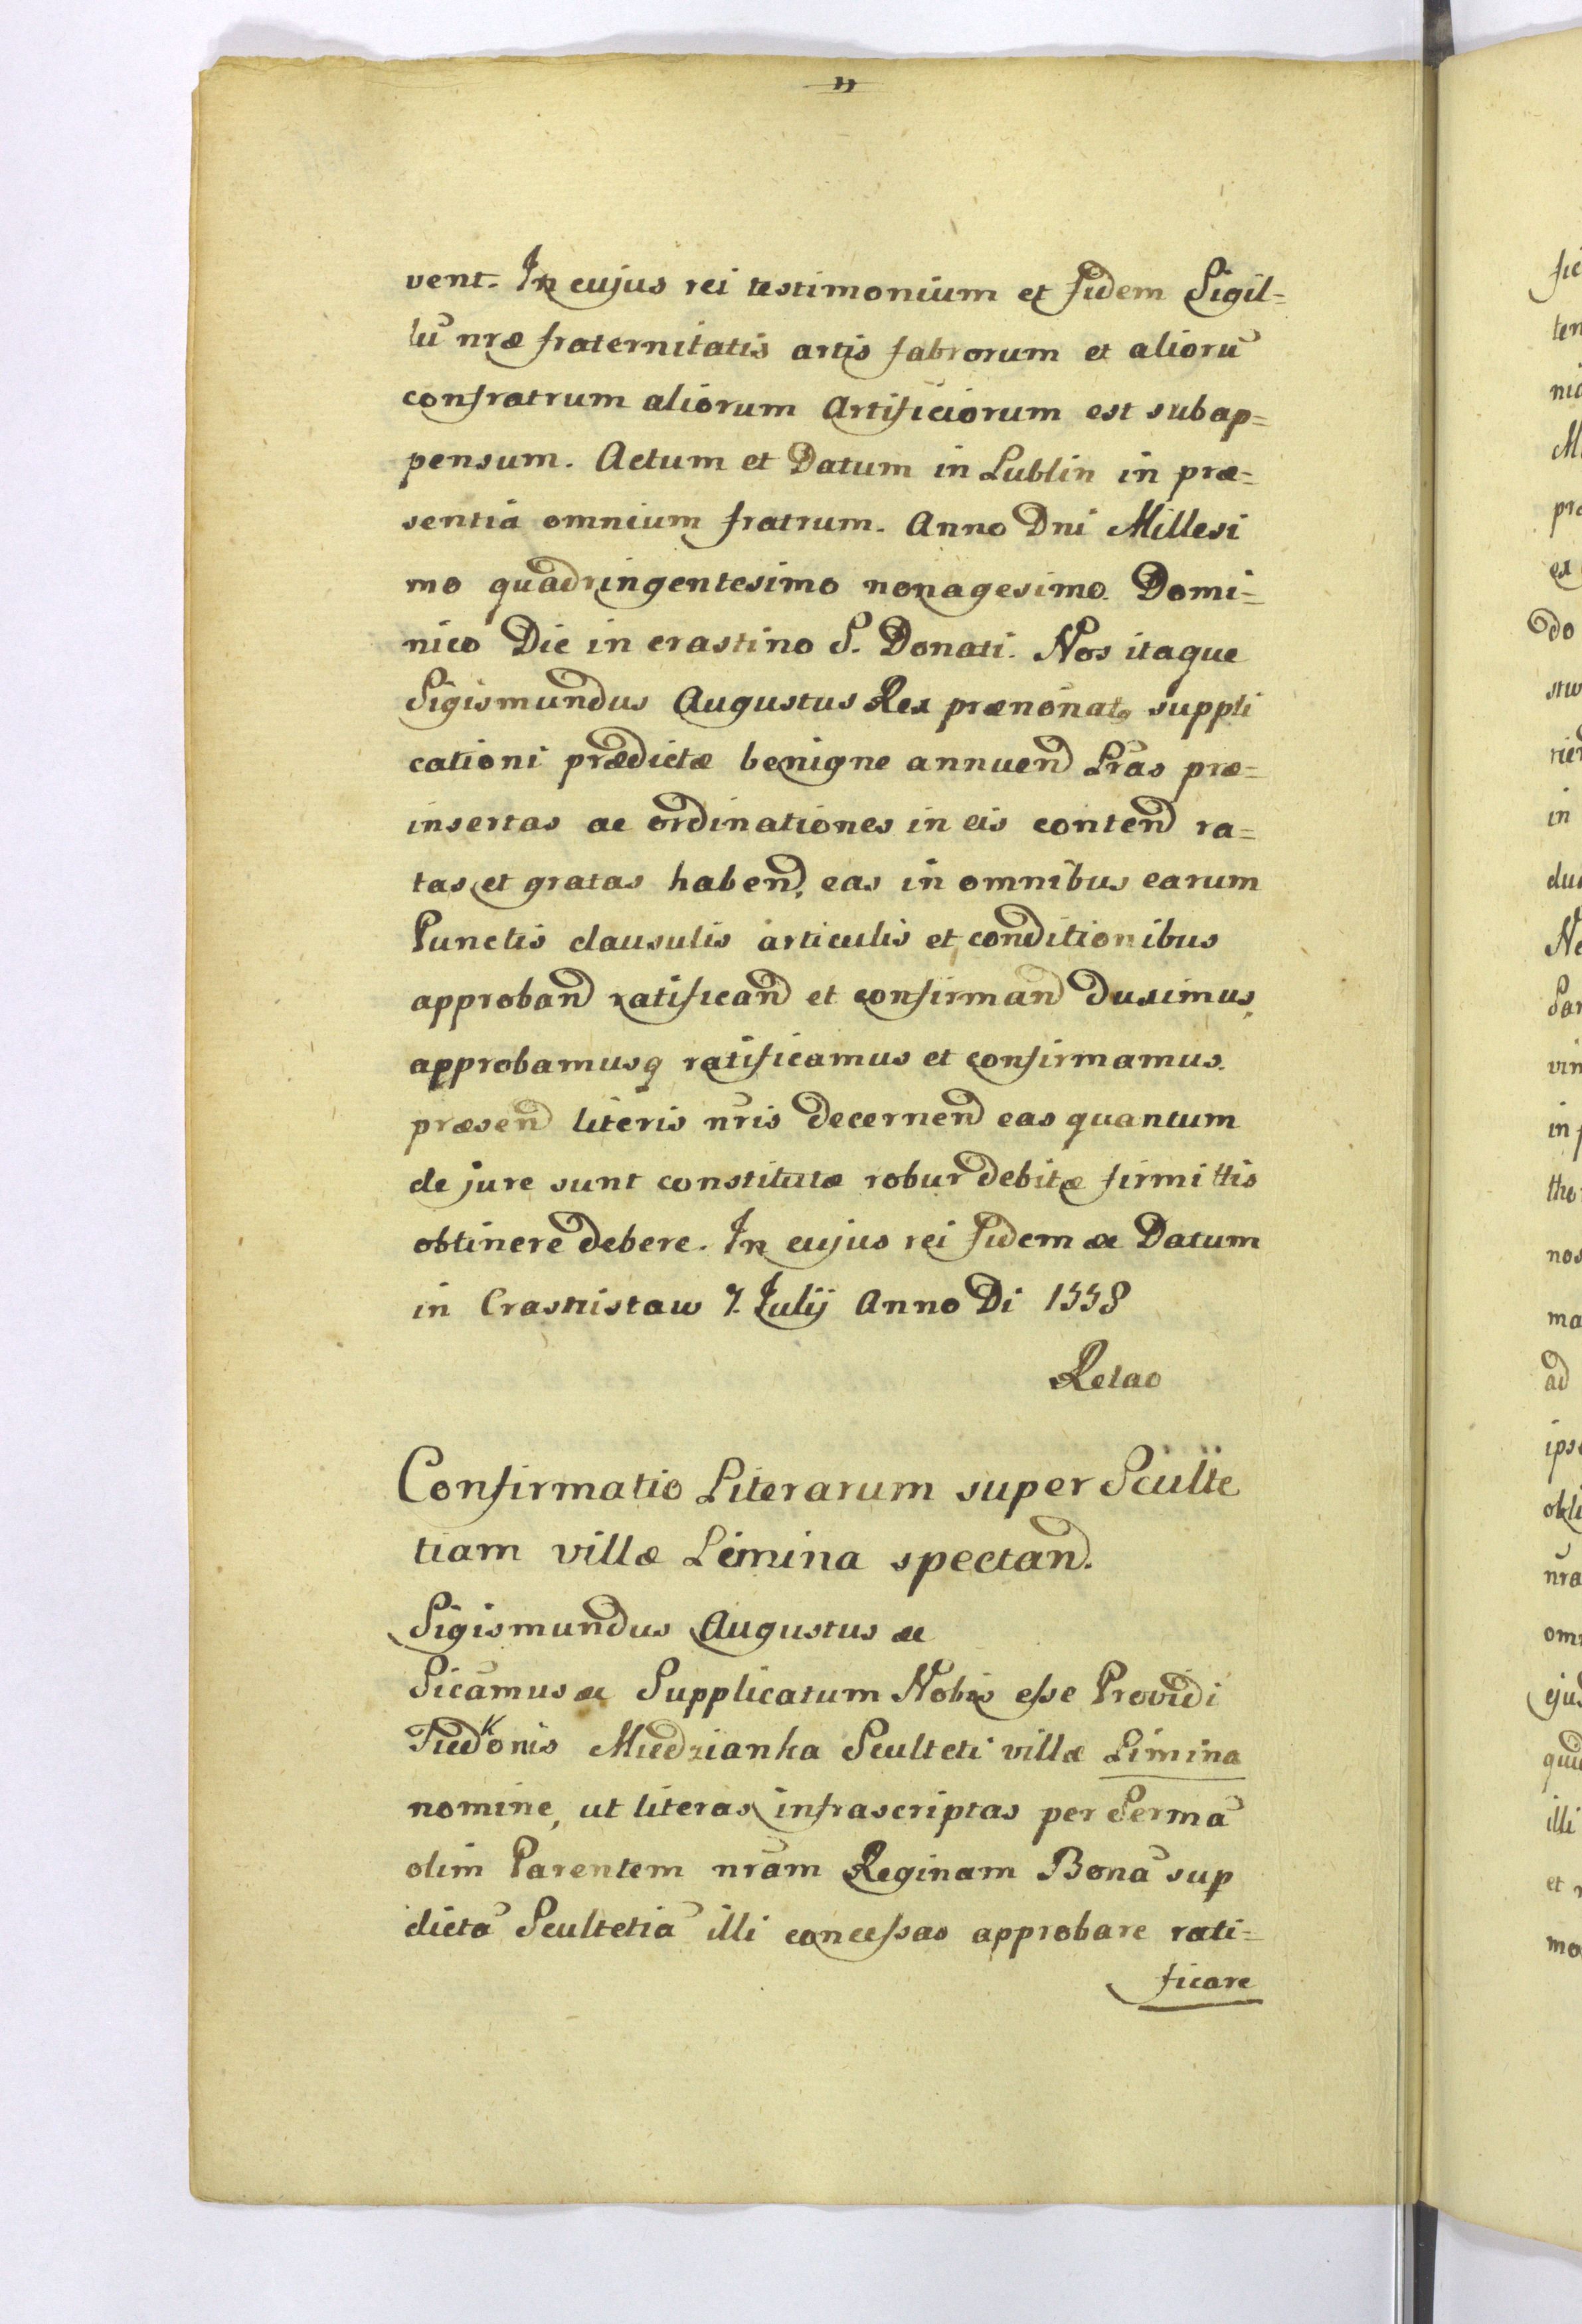 "
vent. In cujus rei testimonium et fidem Sigil=
lũ nræ fraternitatis artis fabrorum et aliorũ
confratrum aliorum Artificiorum est subap=
pensum. Actum et Datum in Lublin in præ=
sentia omnium fratrum. Anno Dni Millesi
mo quadringentesimo nonagesimo. Domi=
nico Die in crastino S. Donati. Nos itaque
Sigismundus Augustus Rex prænõnat, suppli
cationi prædictæ benigne annuend Lras præ=
insertas ac ordinationes in eis contend ra=
tas et gratas habend, eas in omnibus earum
Punctis clausulis articulis et conditionibus
approband ratificand et confirmand duximus,
approbamusq ratificamus et confirmamus.
præsend literis nris decernend eas quantum
de jure sunt constitutæ robur debitæ firmittis
obtinere debere. In cujus rei fidem &c Datum
in Crasnistaw 7. Julij Anno Di 1558
Relao
Confirmatio Literarum super Sculte
tiam villæ Limina spectand.
Sigismundus Augustus &c
Sicamus &c Supplicatum Nobis esse Providi
Miedzianka Sculteti villæ Limina
nomine, ut literas infrascriptas per Sermã
olim Parentem nram Reginam Bonã sup
dictã Scultetiã illi concessas approbare rati=
ficare